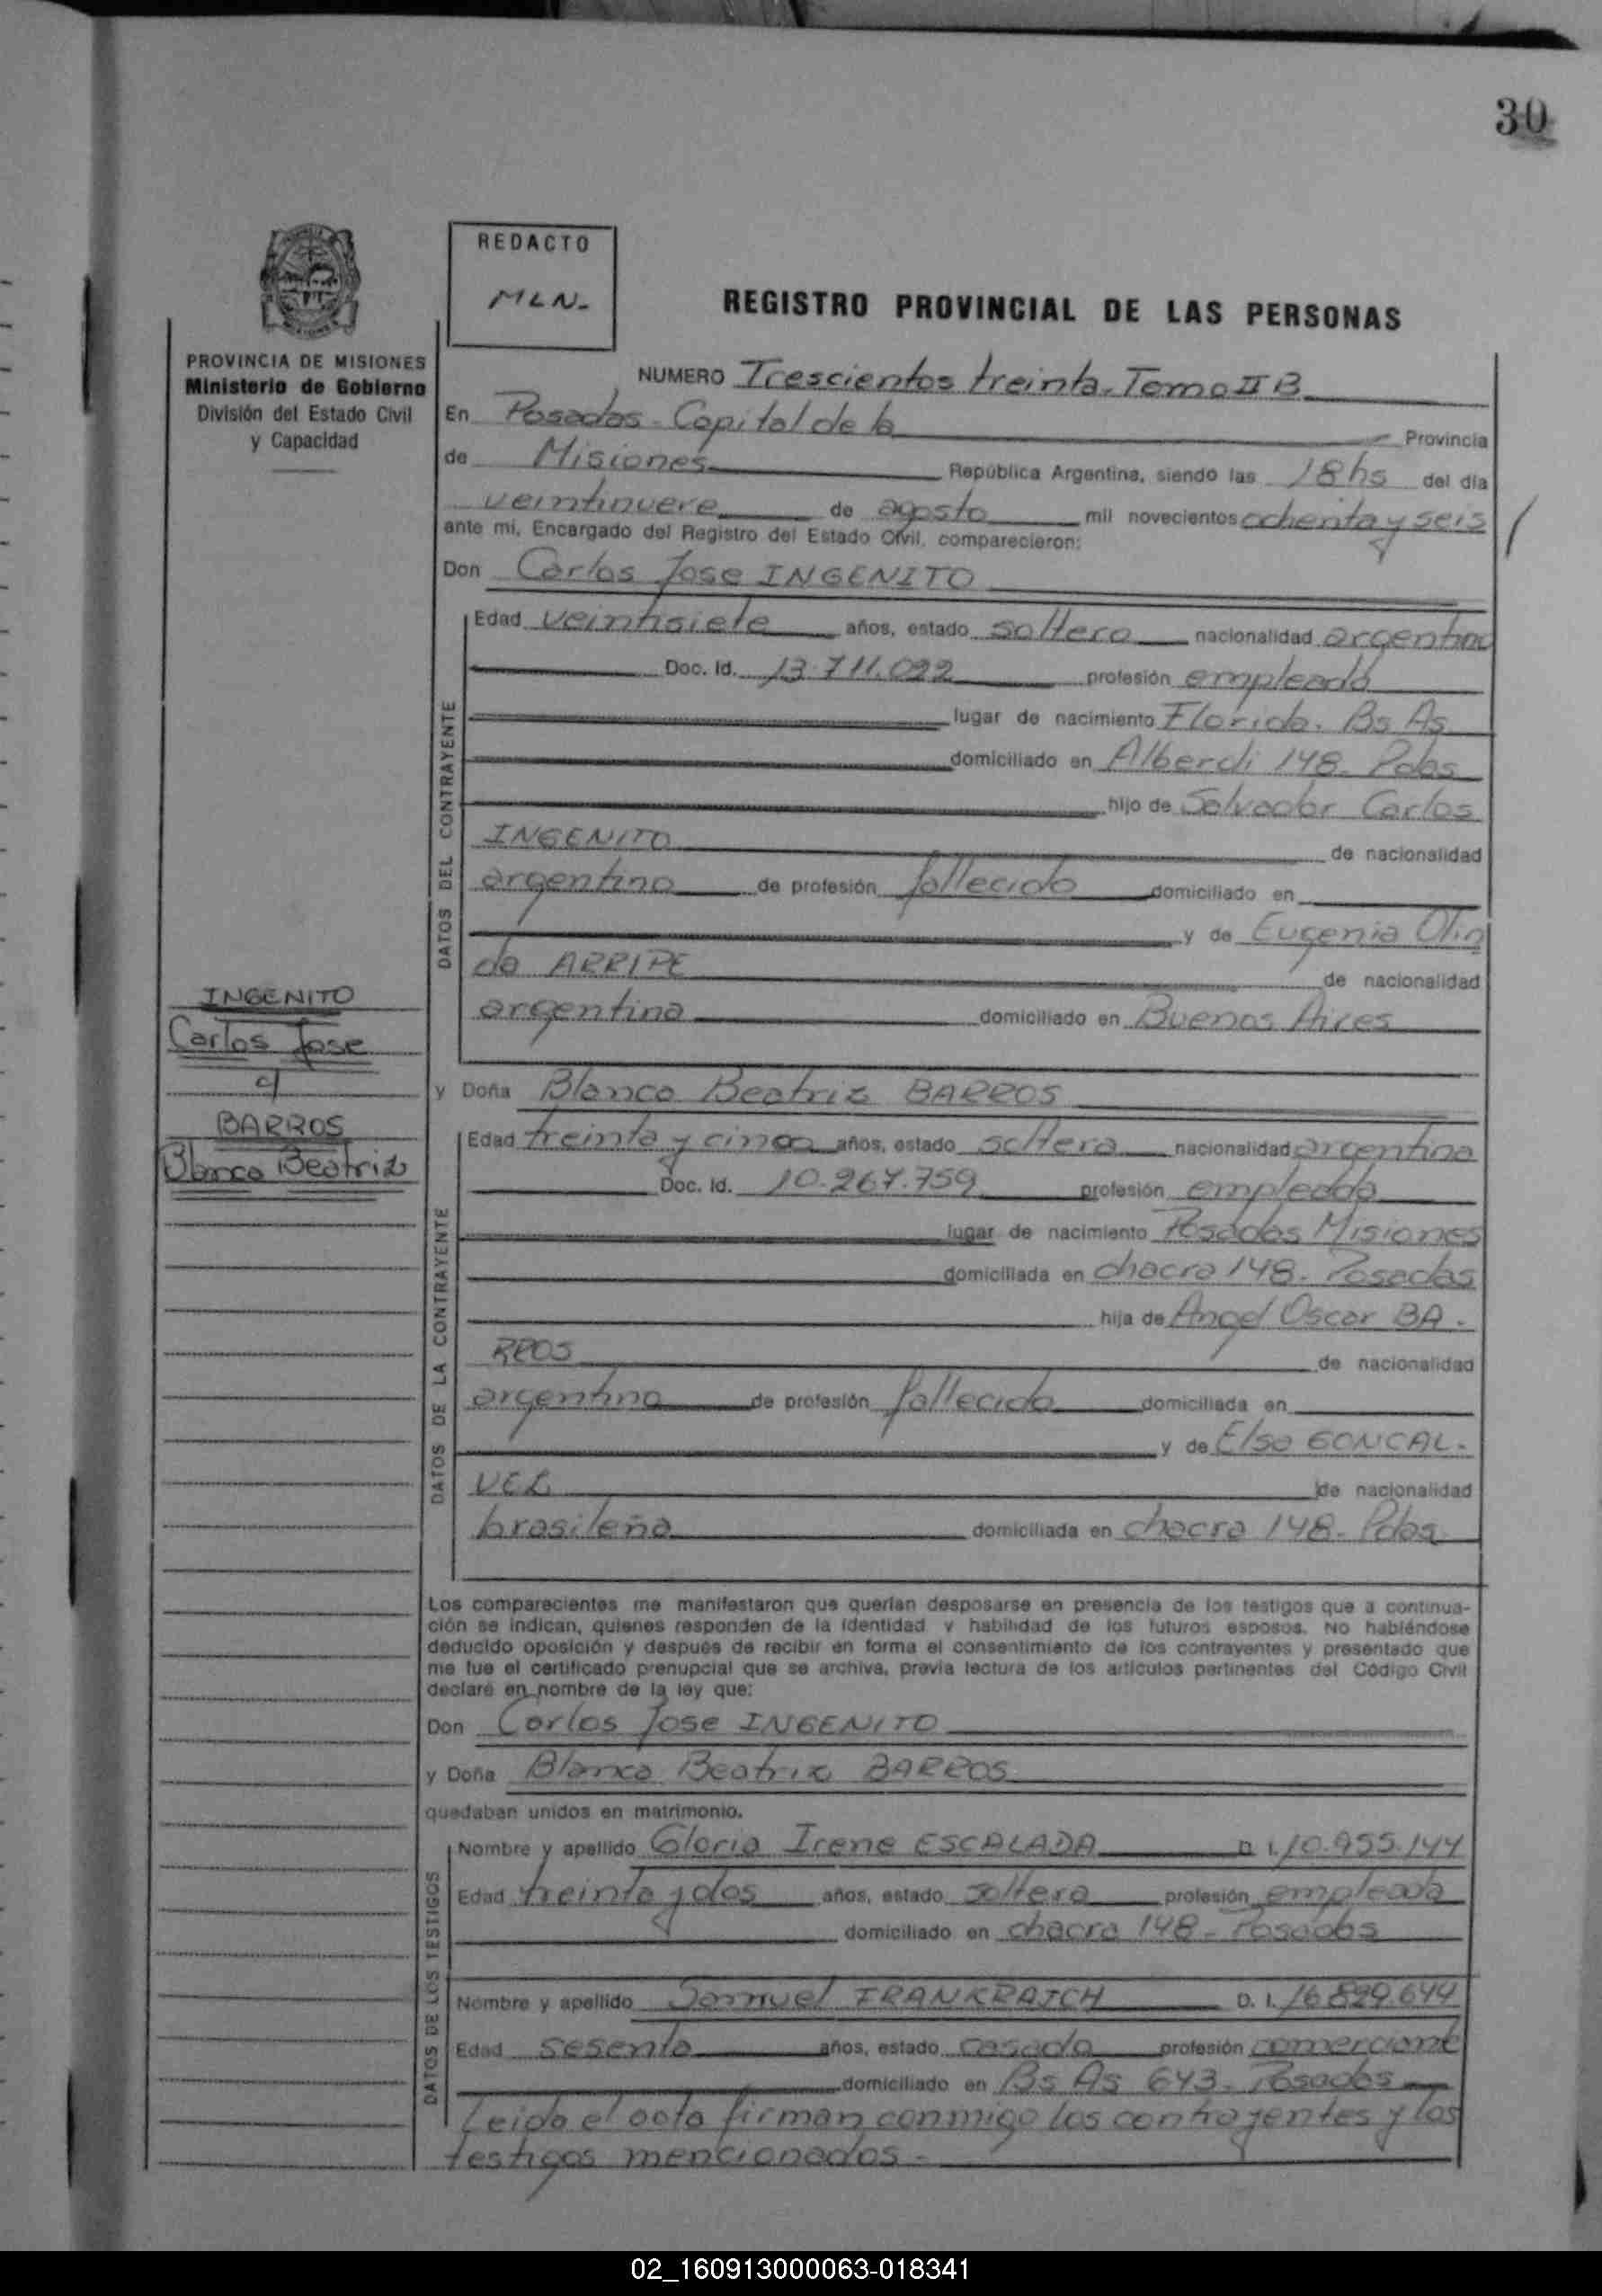 30
REDACTO
MLN-
REGISTRO PROVINCIAL DE LAS PERSONAS
PROVINCIA DE MISIONES
Ministerio de Gobierno
División del Estado Civil
y Capacidad
NUMERO Trescientos treinta. Tomo II B
En Posadas - Capital de la Provincia
de Misiones República Argentina, siendo las 18 hs del día
veintinueve de agosto mil novecientos ochenta y seis
ante mí, Encargado del Registro del Estado Civil, comparecieron:
Don Carlos Jose INGENITO
DATOS DEL CONTRAYENTE
Edad veintisiete años, estado soltero nacionalidad argentino
Doc. Id. 13.711.022 profesión empleado
lugar de nacimiento Florida. Bs As
domiciliado en Alberdi 148. Pdas
hijo de Salvador Carlos
INGENITO de nacionalidad
argentino de profesión fallecido domiciliado en
y de Eugenia Olin
da ARRIPE de nacionalidad
argentina domiciliado en Buenos Aires
INGENITO
Carlos Jose
c/
BARROS
Blanca Beatriz
y Doña Blanca Beatriz BARROS
DATOS DE LA CONTRAYENTE
Edad treinta y cinco años, estado soltera nacionalidad argentina
Doc. Id. 10.267.759 profesión empleada
lugar de nacimiento Posadas Misiones
domiciliada en chacra 148. Posadas
hija de Angel Oscar BA-
RROS de nacionalidad
argentino de profesión fallecido domiciliada en
y de Elsa GONCAL-
VEZ de nacionalidad
brasileña domiciliada en chacra 148. Pdas
Los comparecientes me manifestaron que querían desposarse en presencia de los testigos que a continua-
ción se indican, quienes responden de la identidad y habilidad de los futuros esposos. No habiéndose
deducido oposición y después de recibir en forma el consentimiento de los contrayentes y presentado que
me fue el certificado prenupcial que se archiva, previa lectura de los artículos pertinentes del Código Civil
declaré en nombre de la ley que:
Don Carlos Jose INGENITO
y Doña Blanca Beatriz BARROS
quedaban unidos en matrimonio.
DATOS DE LOS TESTIGOS
Nombre y apellido Gloria Irene ESCALADA D. I. 10.955.144
Edad treinta y dos años, estado soltera profesión empleada
domiciliado en chacra 148 - Posadas
Nombre y apellido Samuel FRANKRAJCH D. I. 16.829.644
Edad sesenta años, estado casado profesión comerciante
domiciliado en Bs As 643. Posadas
Leida el acta firman conmigo los contrayentes y los
testigos mencionados.-
02_160913000063-018341